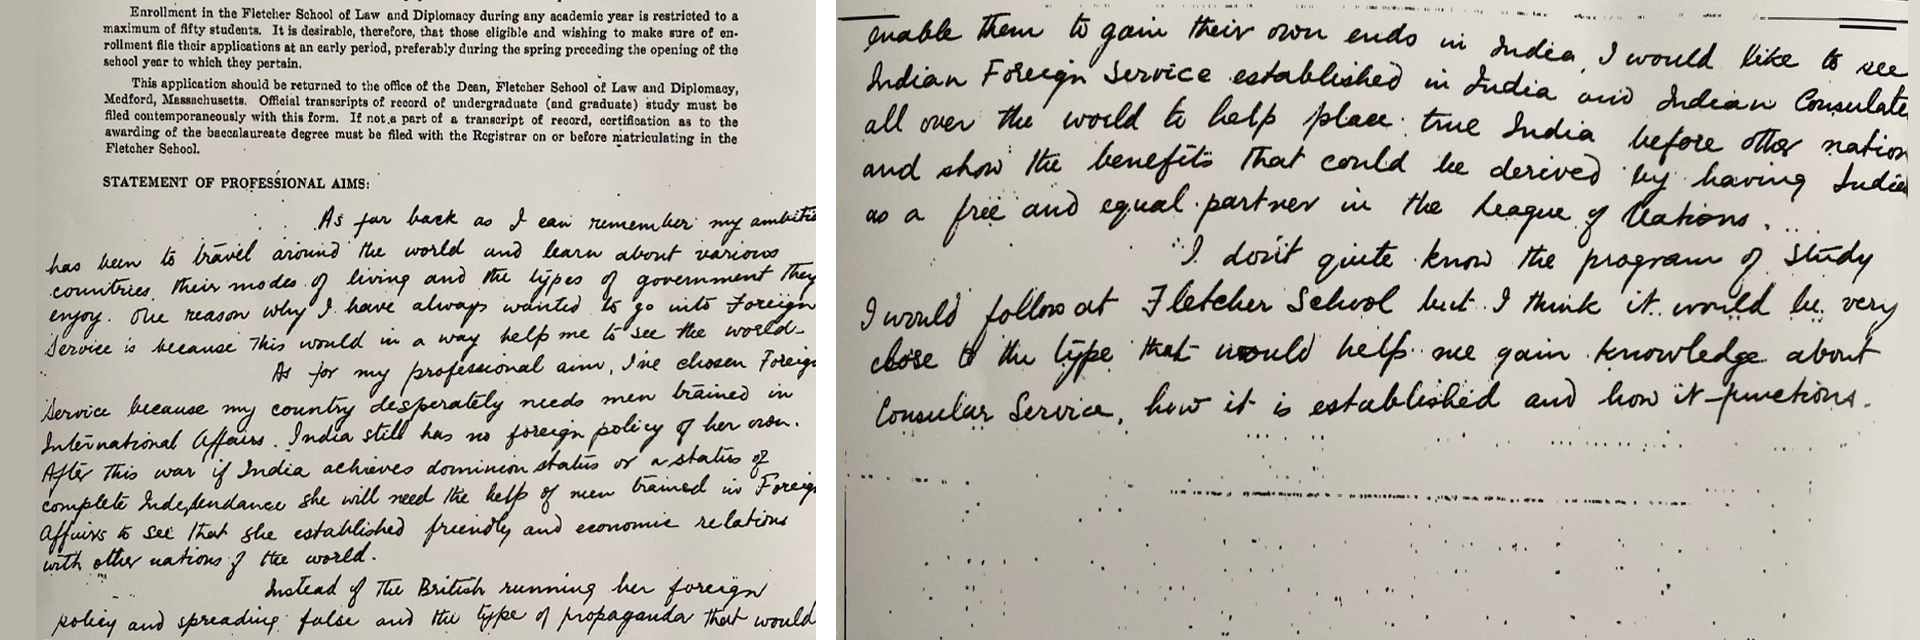 Enrollment in the Fletcher School of Law and Diplomacy during any academic year is restricted to a
maximum of fifty students. It is desirable, therefore, that those eligible and wishing to make sure of en-
rollment file their applications at an early period, preferably during the spring preceding the opening of the
school year to which they pertain.
This application should be returned to the office of the Dean, Fletcher School of Law and Diplomacy,
Medford, Massachusetts. Official transcripts of record of undergraduate (and graduate) study must be
filed contemporaneously with this form. If not a part of a transcript of record, certification as to the
awarding of the baccalaureate degree must be filed with the Registrar on or before matriculating in the
Fletcher School.
STATEMENT OF PROFESSIONAL AIMS:
As far back as I can remember my ambitio
has been to travel around the world and learn about various
countries, their modes of living and the types of government they
enjoy. One reason why I have always wanted to go into Foreign
Service is because this would in a way help me to see the world.
As for my professional aim, I've chosen Foreign
Service because my country desperately needs men trained in
International Affairs. India still has no foreign policy of her own.
After this war if India achieves dominion status or a status of
complete Independance she will need the help of men trained in Foreign
Affairs to see that she established friendly and economic relations
with other nations of the world.
Instead of the British running her foreign
policy and spreading false and the type of propaganda that would
enable them to gain their own ends in India, I would like to see
Indian Foreign Service established in India and Indian Consulate
all over the world to help place true India before other nation
and show the benefits that could be derived by having India
as a free and equal partner in the League of Nations.
I don't quite know the program of study
I would follow at Fletcher School but I think it would be very
close to the type that would help me gain knowledge about
Consular Service, how it is established and how it functions.